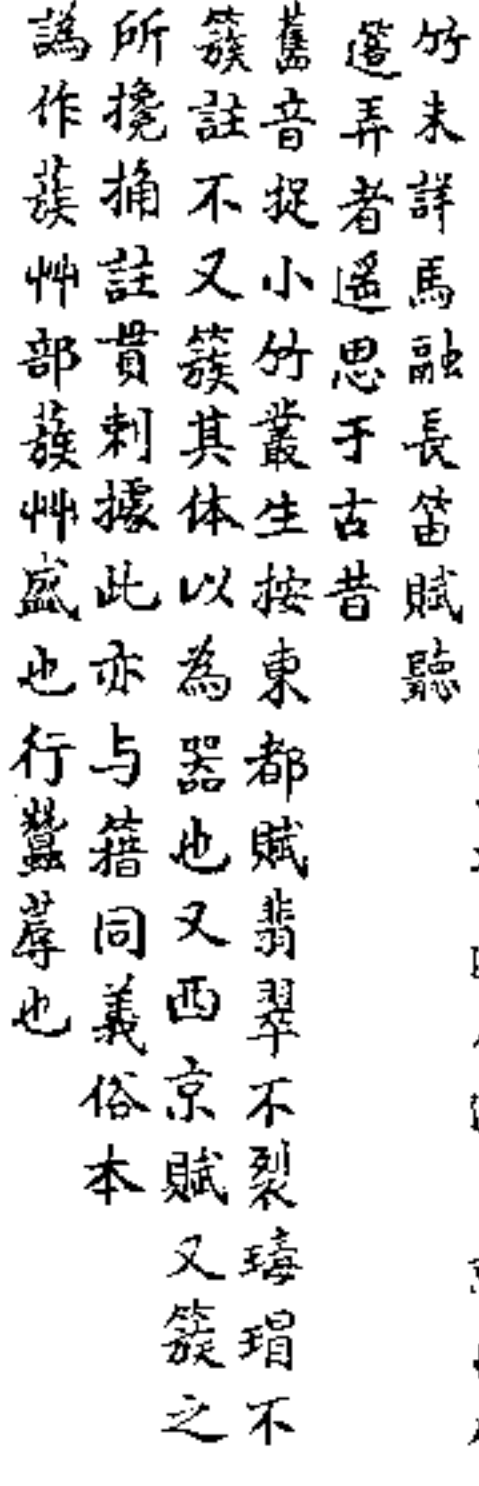 竹未詳馬融長笛賦聽
簉弄者遥思于古昔
舊音捉小竹叢生按東都賦翡翠不裂瑇瑁不
簇註不又簇其体以為器也又西京賦又簇之
所攙捅註貫刺據此亦与籍同義俗本
譌作蔟艸部蔟艸盛也行蠶蓐也